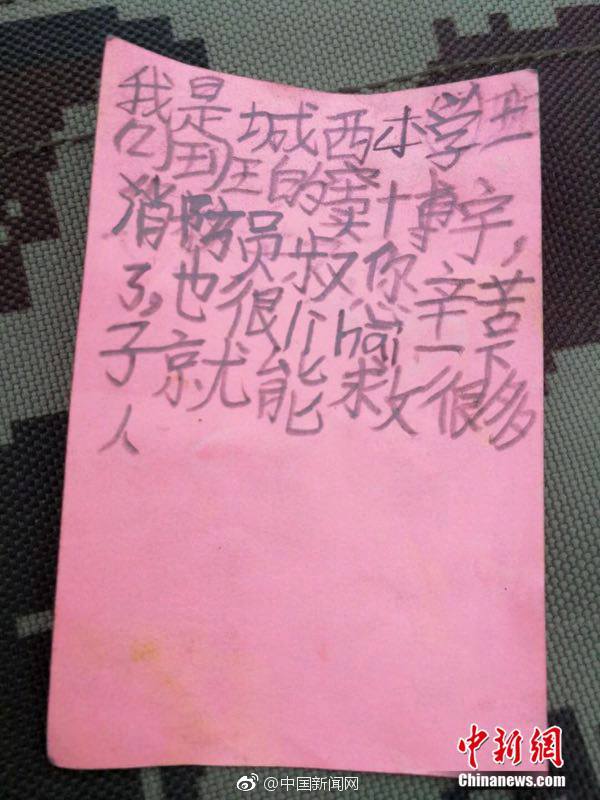 我是城西小学三
(1)班的窦博宇,
消防员叔叔你辛苦
了,也很厉hai一下
子就能救很多
人
@中国新闻网
中新網
Chinanews.com